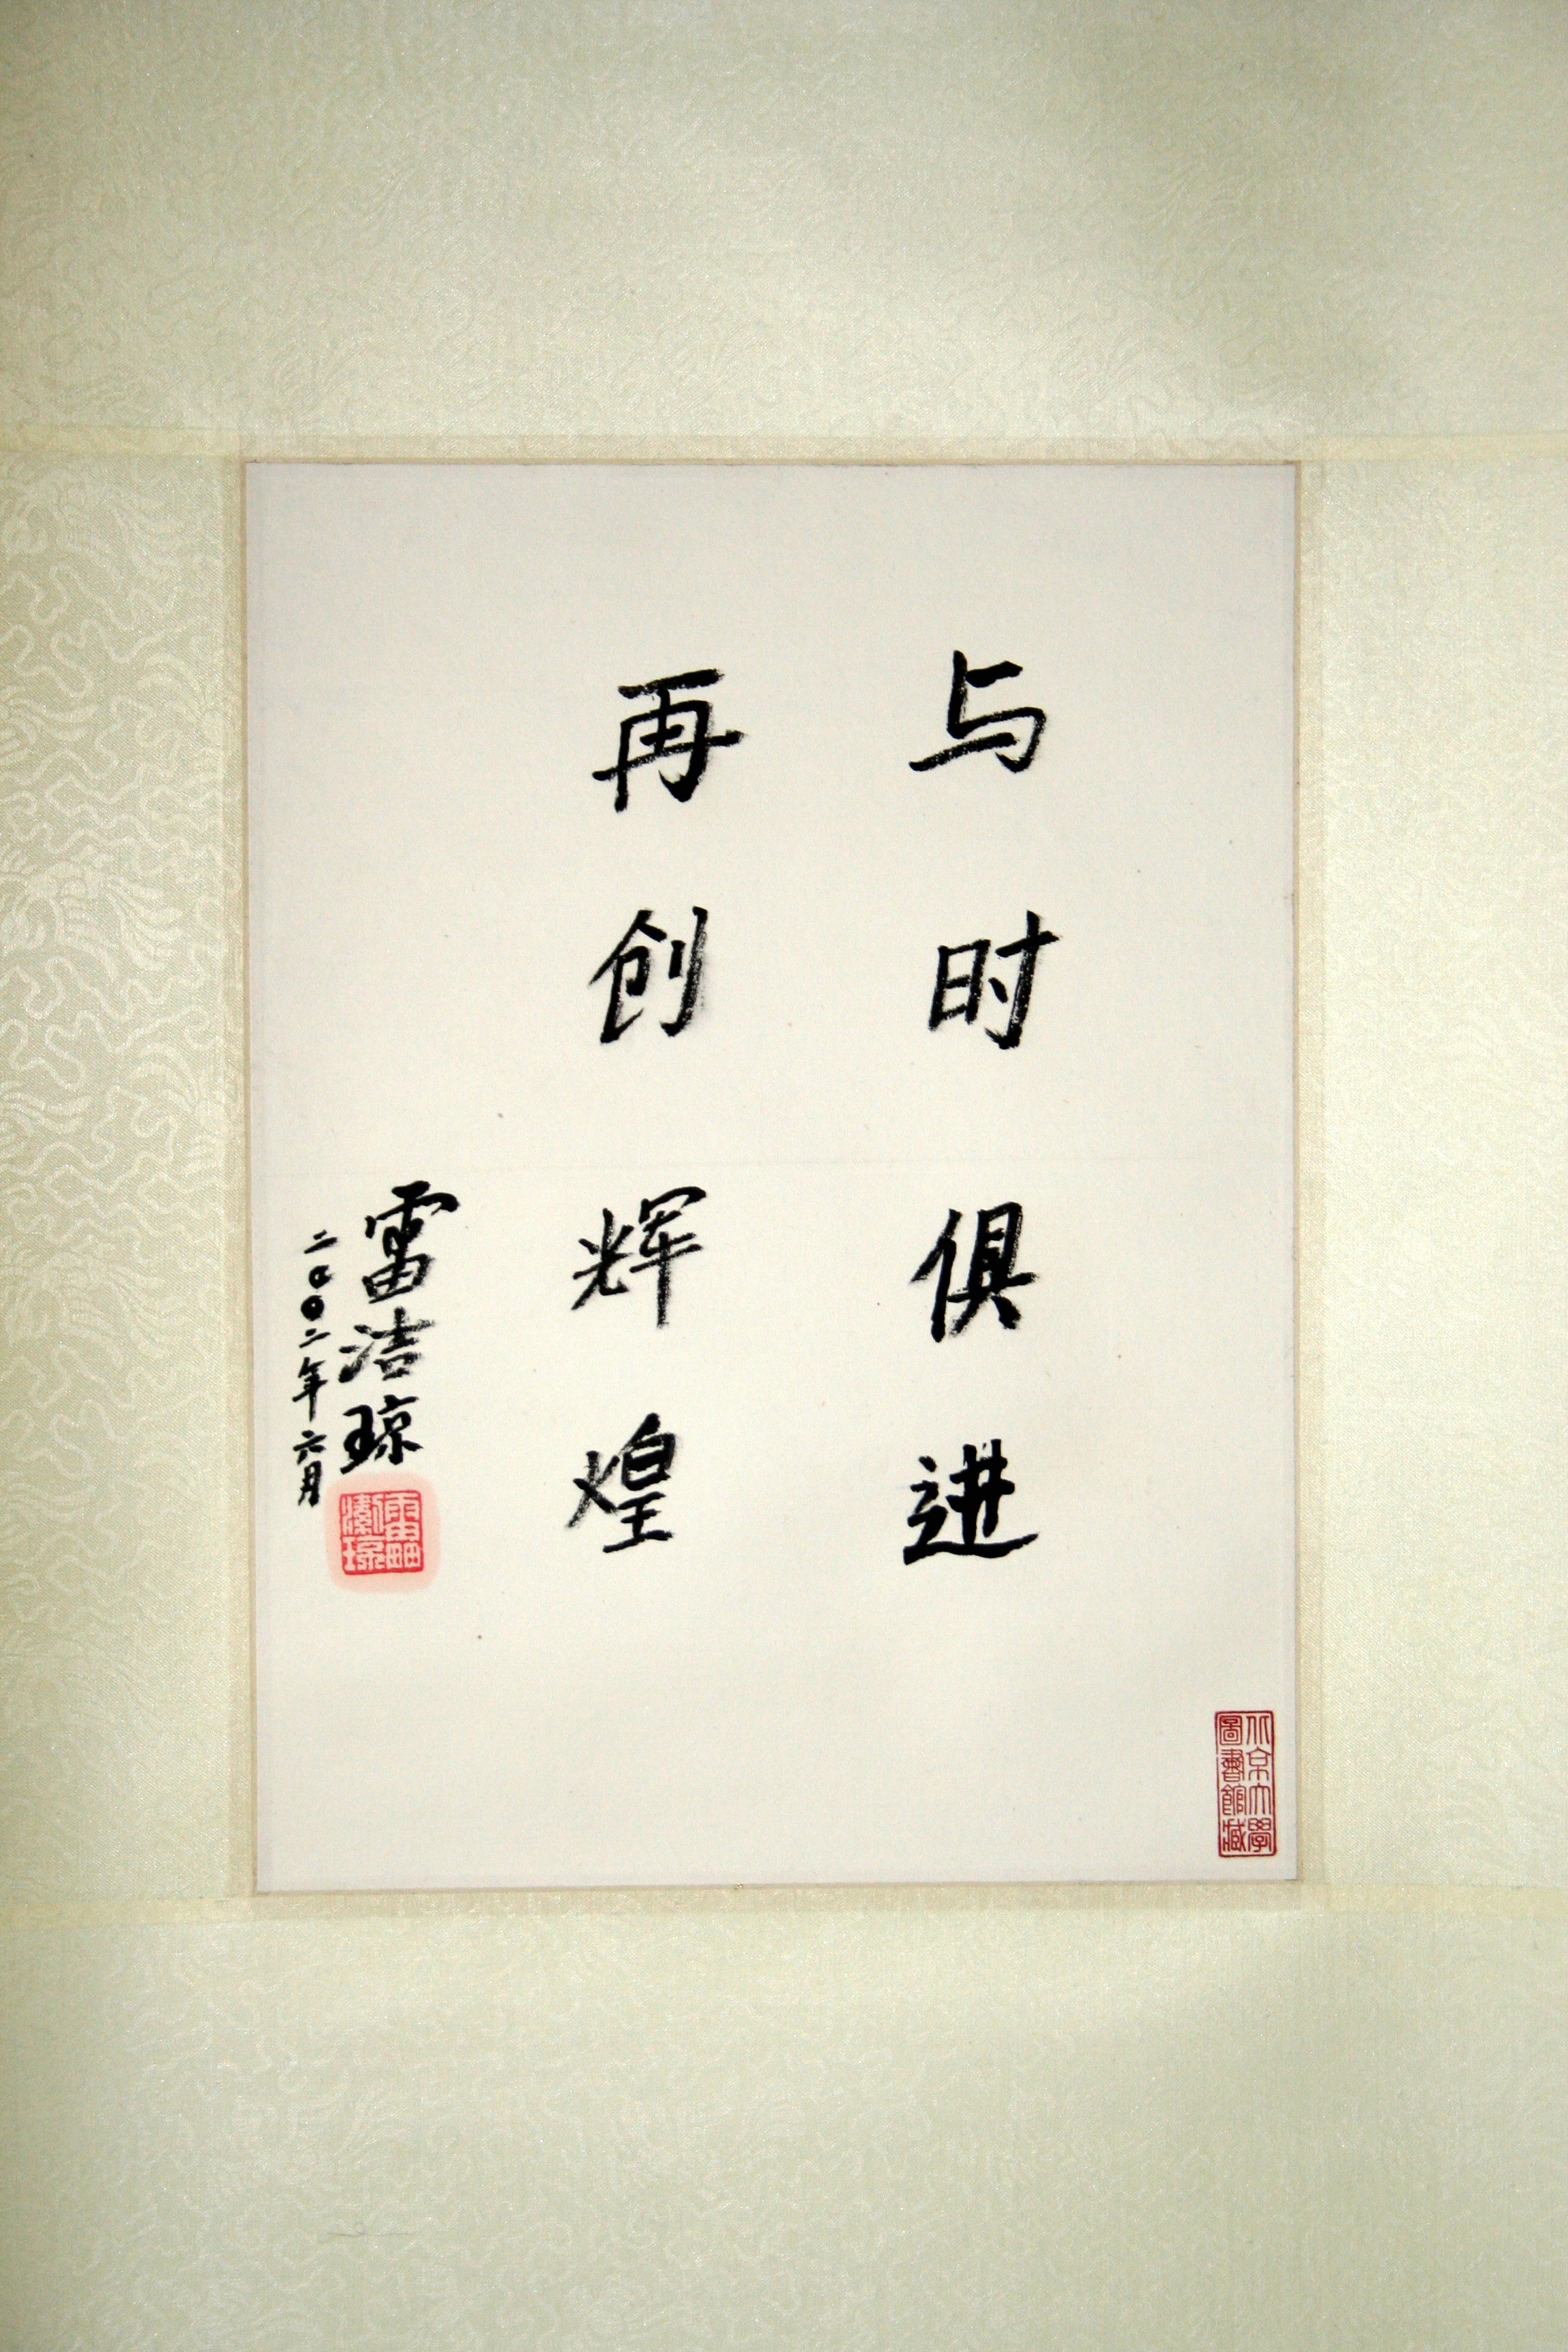 与时俱进
再创辉煌
雷洁琼
二〇〇二年六月
雷洁琼
北京大學
圖書館藏